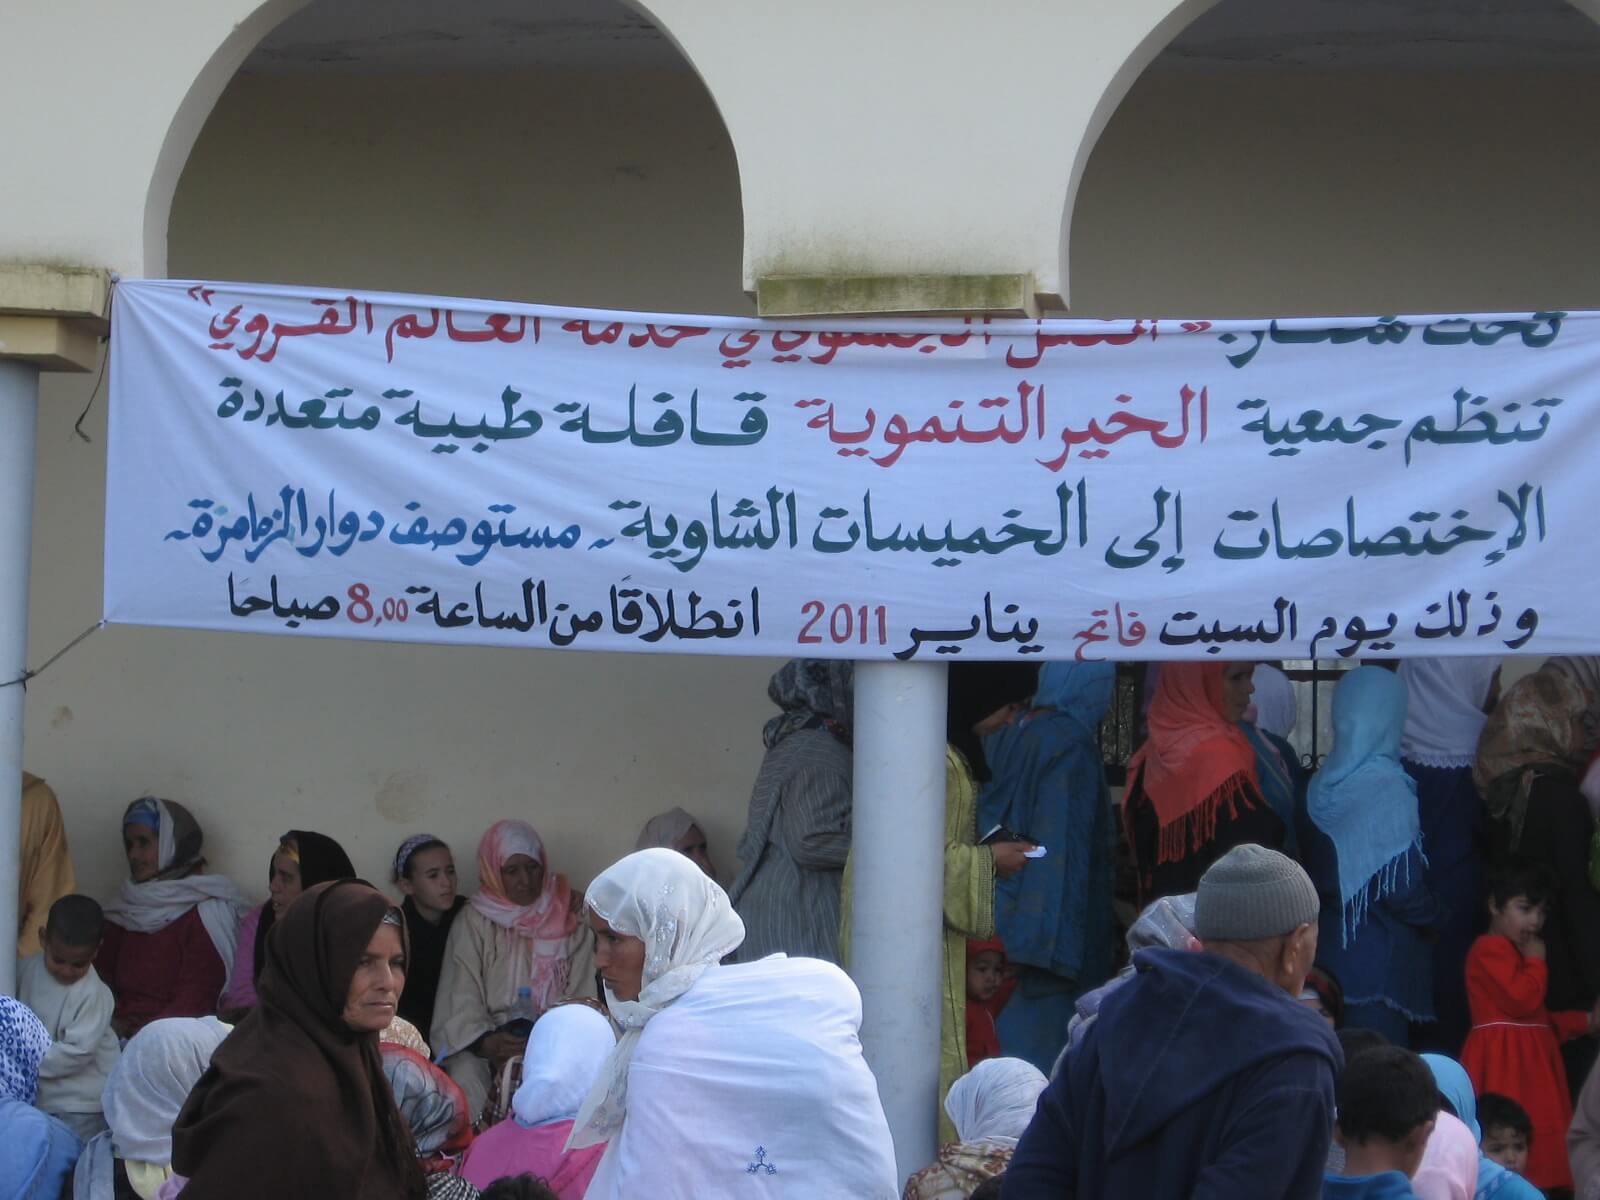 تحت شعار: "العمل الجمعوي في خدمة العالم القروي"
تنظم جمعية الخير التنموية قافلة طبية متعددة
الإختصاصات إلى الخميسات الشاوية - مستوصف دوار الزمامزة -
وذلك يوم السبت فاتح يناير 2011 انطلاقا من الساعة 8,00 صباحا